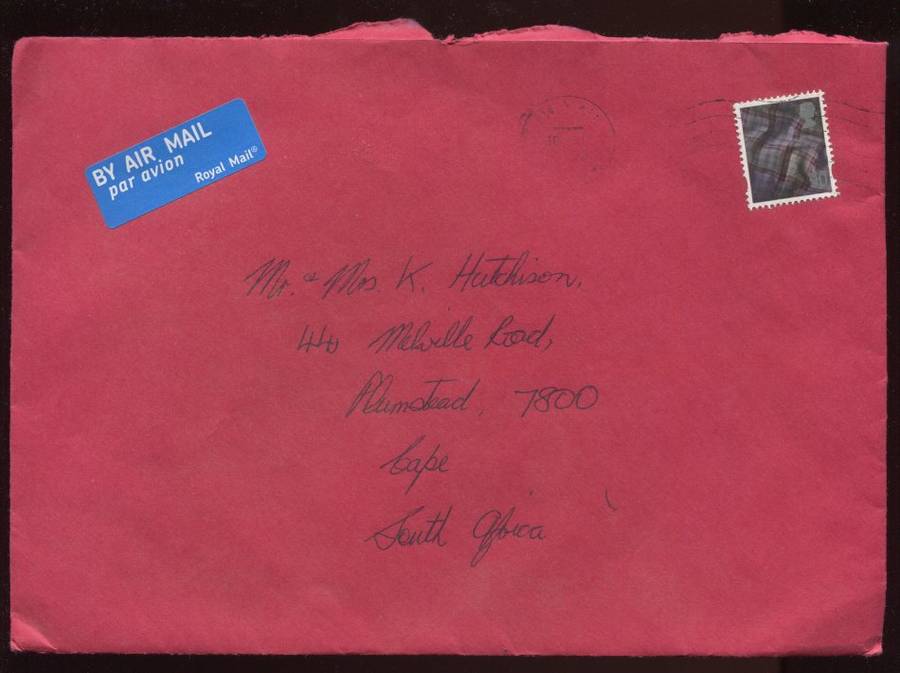 BY AIR MAIL
par avion
Royal Mail®
Mr. & Mrs. K. Hutchison,
44 Melville Road,
Plumstead, 7800
Cape
South Africa